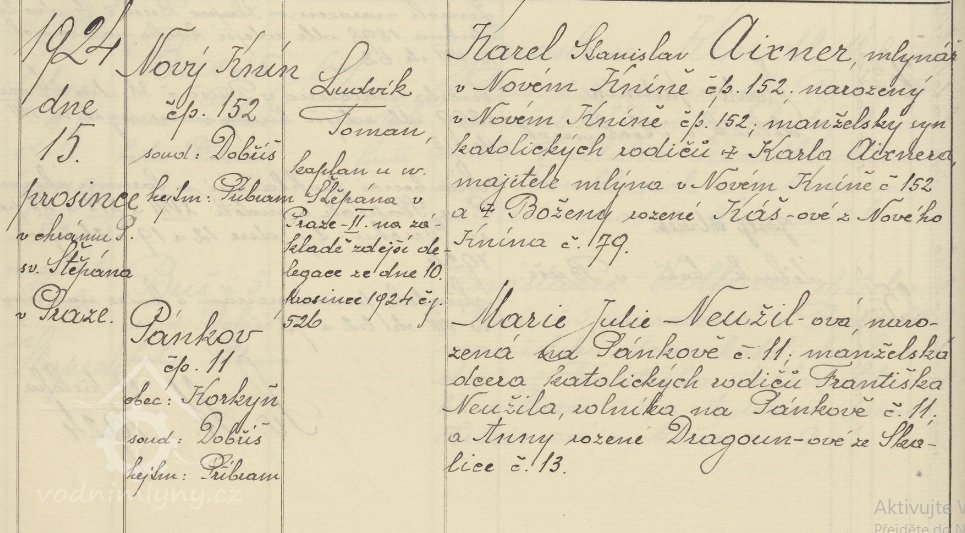 1924
dne
15.
prosince
v chrámu P.
sv. Štěpána
v Praze.
Nový Knín
čp. 152
soud: Dobříš
hejtm: Příbram
Pánkov
čp. 11
obec: Korkyň
soud: Dobříš
hejtm: Příbram
Ludvík
Toman,
kaplan u sv.
Štěpána v
Praze-II. na zá-
kladě zdejší de-
legace ze dne 10.
prosince 1924 č.j.
526
Karel Stanislav Aixner, mlynář
v Novém Kníně čp. 152. narozený
v Novém Kníně čp. 152; manželský syn
katolických rodičů ✝ Karla Aixnera,
majitele mlýna v Novém Kníně č 152
a ✝ Boženy rozené Káš-ové z Nového
Knína č. 79.
Marie Julie Neužil-ová, naro-
zená na Pánkově č. 11; manželská
dcera katolických rodičů Františka
Neužila, rolníka na Pánkově č. 11;
a Anny rozené Dragoun-ové ze Ska-
lice č. 13.
vodnimlyny.cz
Aktivujte
Přejděte do N